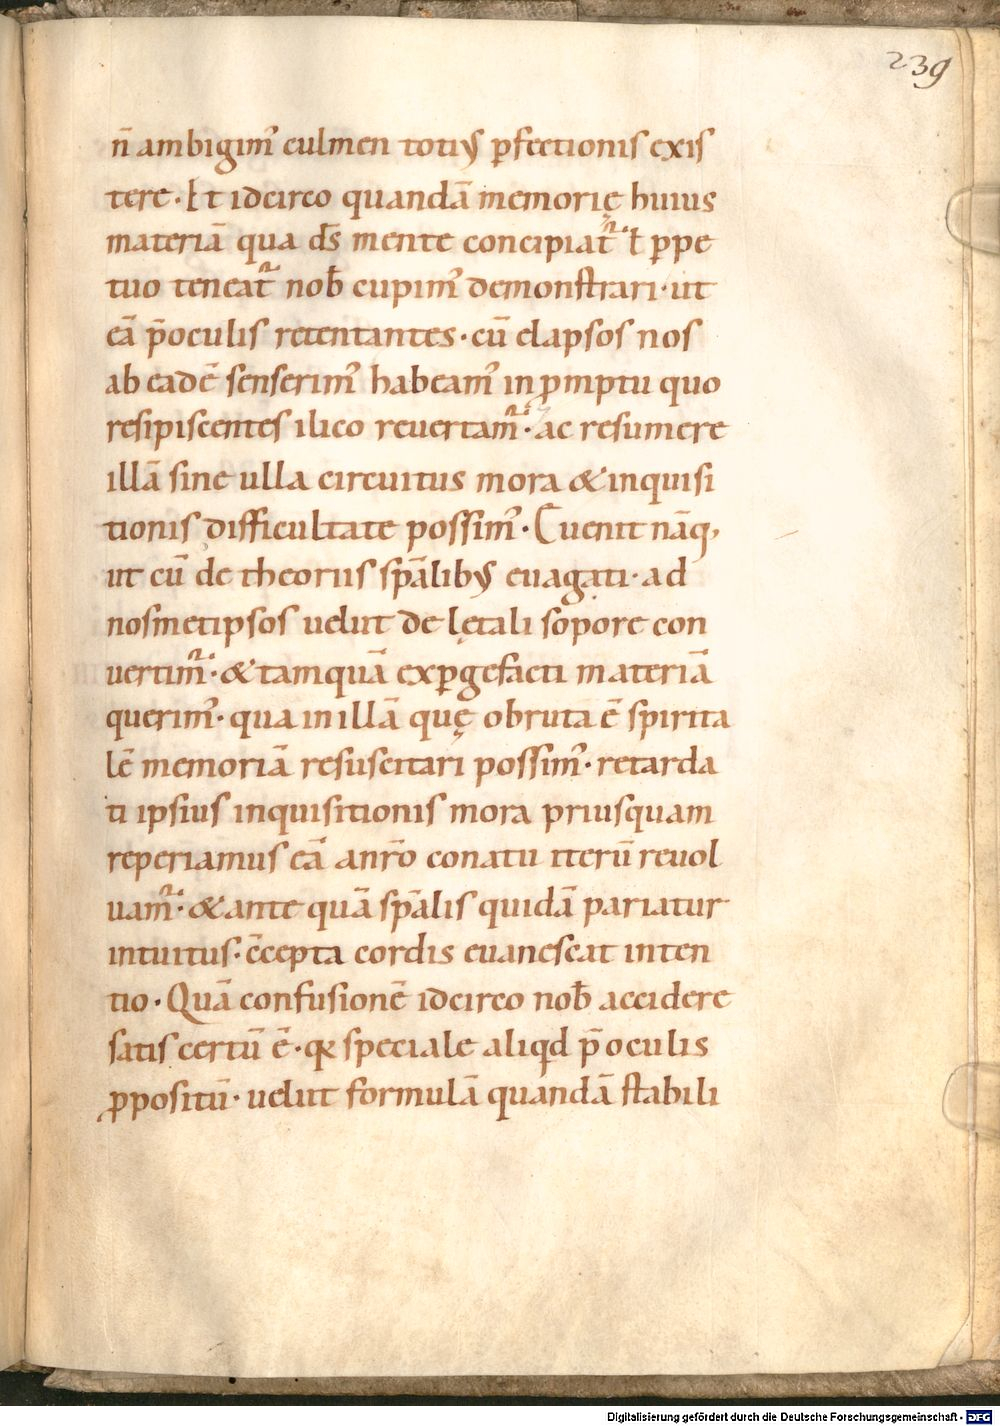 239
n̄ ambigim᾽ culmen totiꝰ ꝑfectionis exis
tere. Et idcirco quandā memorię huius
materiā qua d̄s mente concipiat᷑. ꝉ ꝑpe
tuo teneat᷑ nob̄ cupim᾽ demonstrari. ut
eā p̄oculis retentantes. cū elapsos nos
ab eadē senserim᾽ habeam᾽ in ꝓmptu quo
resipiscentes ilico reuertam᷑. ac resumere
illā sine ulla circuitus mora & inquisi
tionis difficultate possim᾽. Euenit nāq,
ut cū de theoriis sp̄alibꝰ euagati. ad
nosmetipsos uelut de lętali sopore con
uertim᷑. & tamquā exꝑgefacti materiā
querim᾽. qua in illā quę obruta ē spirita
lē memoriā resuscitari possim᾽. retarda
ti ipsius inquisitionis mora priusquam
reperiamus eā a nr̄o conatu iterū reuol
uam᷑. & ante quā sp̄alis quidā pariatur
intuitus. c̄cepta cordis euanescat inten
tio. Quā confusionē idcirco nob̄ accidere
satis certū ē. qꝛ speciale aliqd p̄ oculis
ꝓpositū. uelut formulā quandā stabili
Digitalisierung gefördert durch die Deutsche Forschungsgemeinschaft - DFG